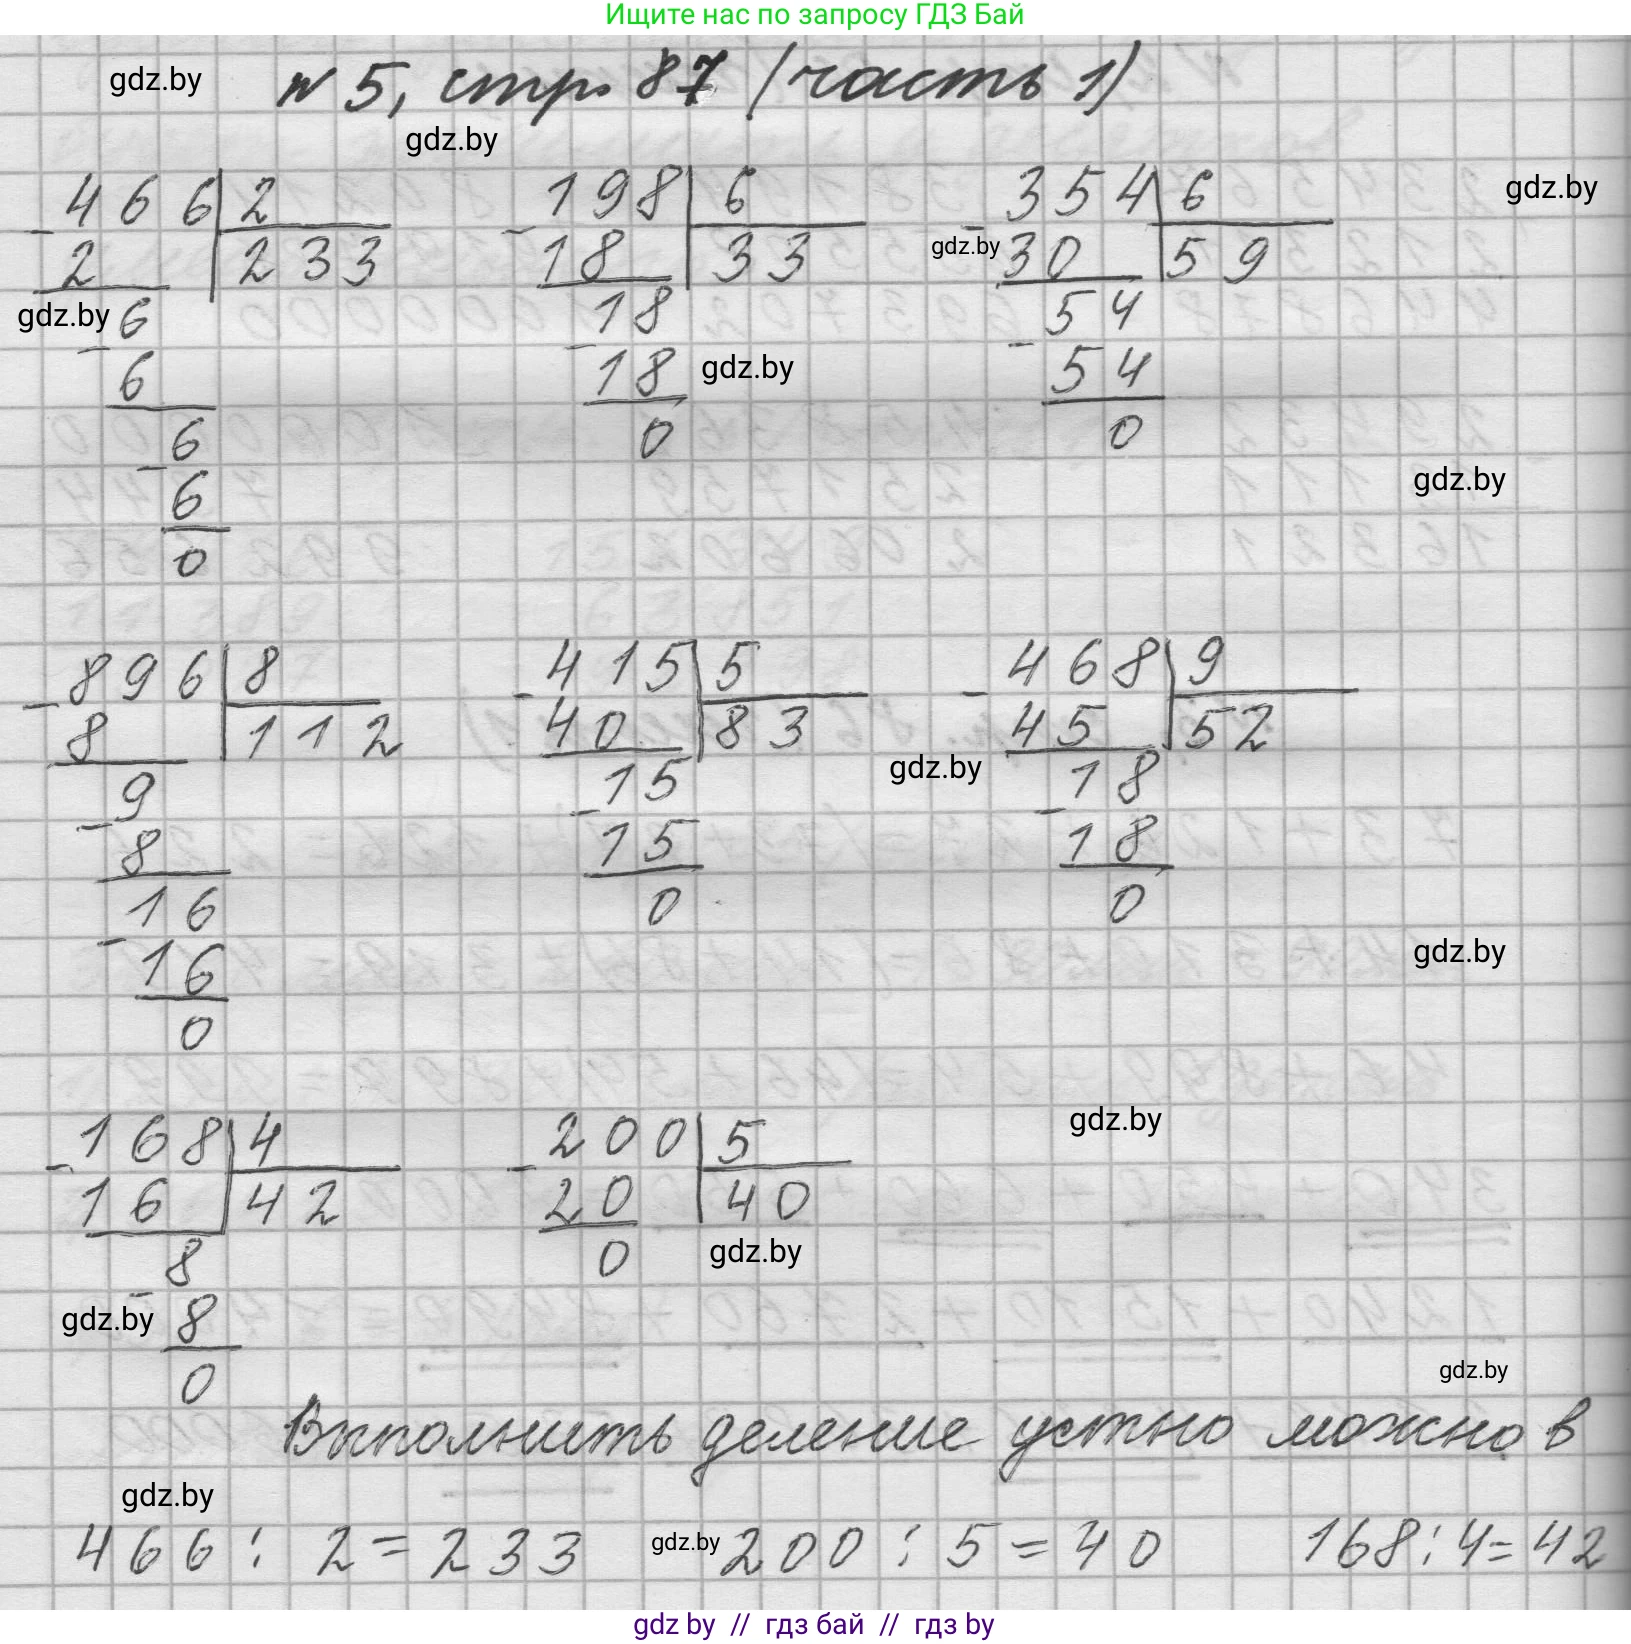 Ищите нас по запросу ГДЗ Бай
gdz.by
№ 5, стр. 87 (часть 1)
gdz.by
466 2 198 6 354 6 gdz.by
- - - gdz.by
2 233 18 33 30 59
gdz.by 6 18 54
- - -
6 18 gdz.by 54
6 0 0
-
6 gdz.by
0
896 8 415 5 468 9
- - -
8 112 40 83 45 52
9 15 gdz.by 18
- - -
8 15 18
16 0 0
-
16 gdz.by
0
168 4 200 5 gdz.by
- -
16 42 20 40
8 0 gdz.by
-
gdz.by 8
0 gdz.by
Выполнить деление устно можно в
gdz.by
466 : 2 = 233 gdz.by 200 : 5 = 40 168 : 4 = 42
gdz by // гдз бай // гдз by